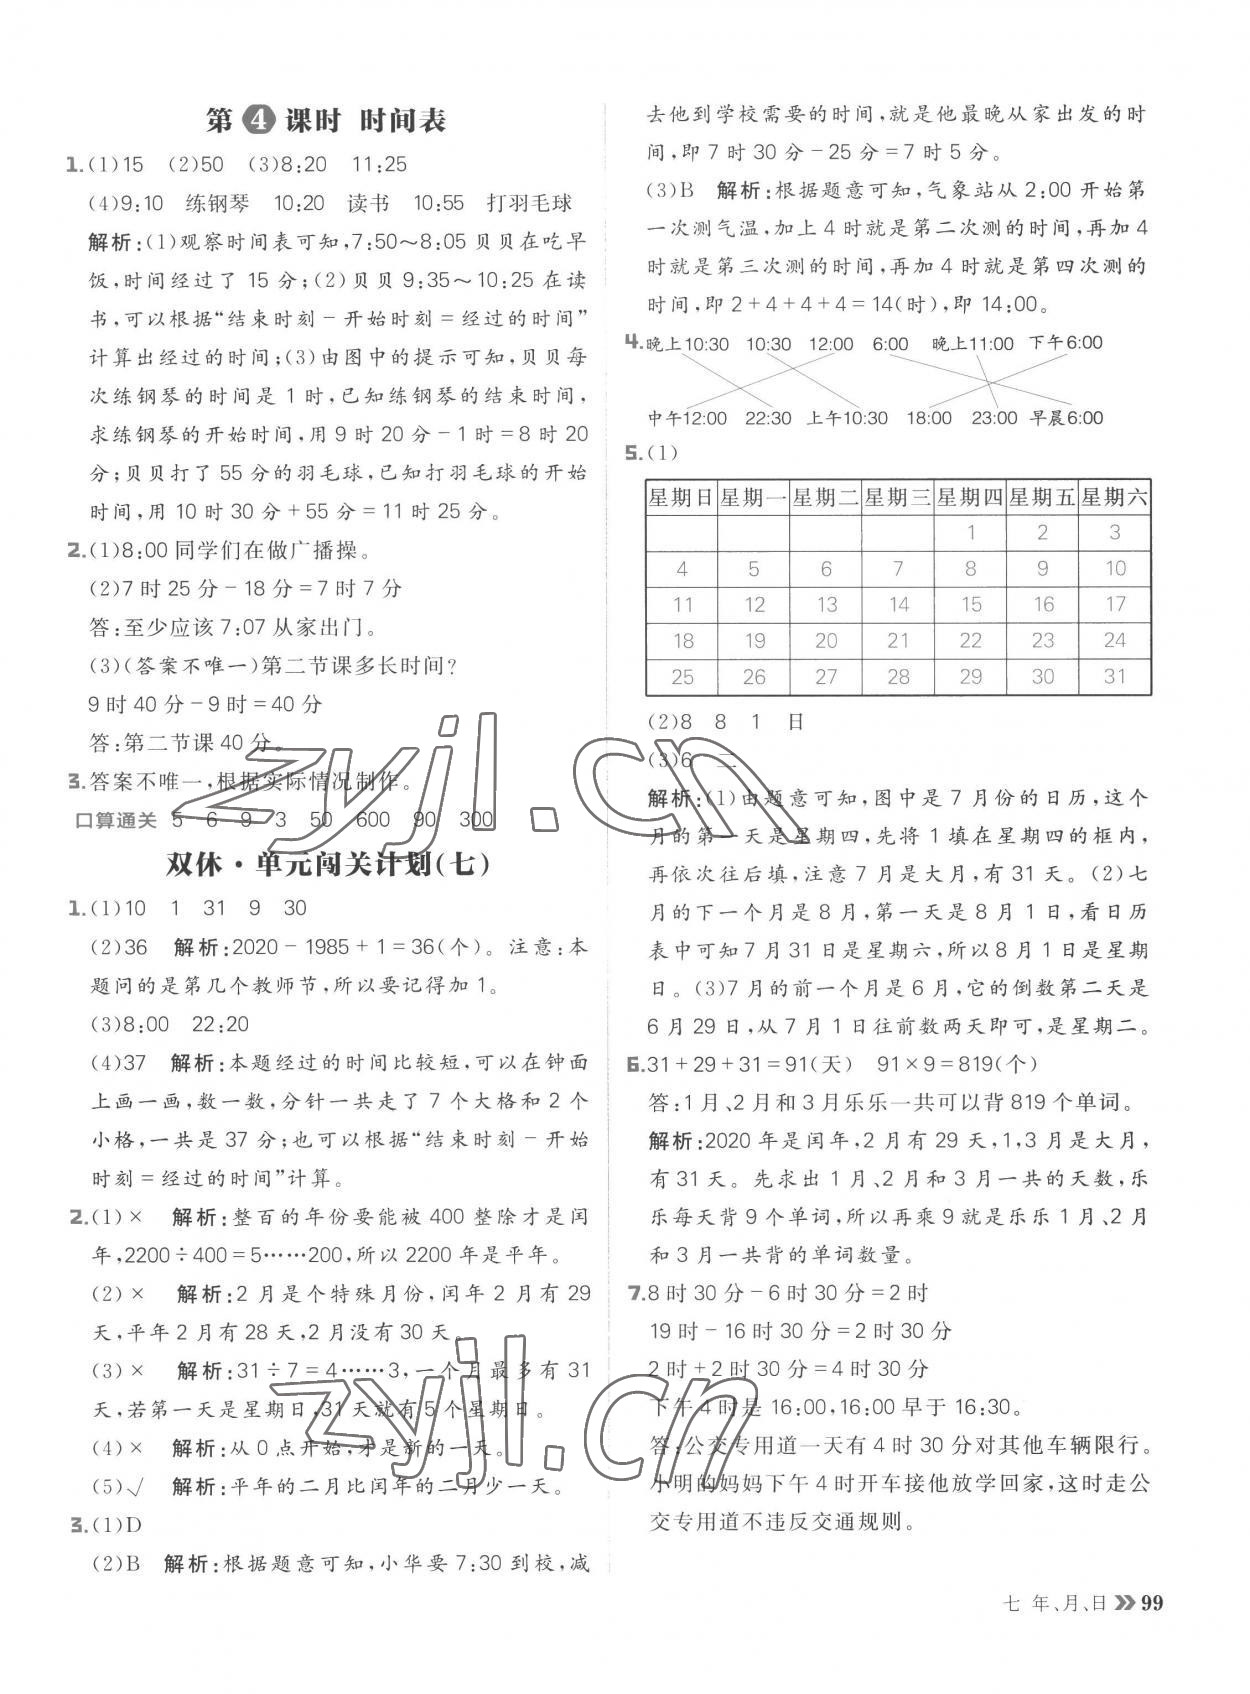 第4课时 时间表
1.(1)15 (2)50 (3)8:20 11:25
(4)9:10 练钢琴 10:20 读书 10:55 打羽毛球
解析:(1)观察时间表可知,7:50～8:05 贝贝在吃早
饭,时间经过了 15 分;(2)贝贝 9:35～10:25 在读
书,可以根据“结束时刻－开始时刻＝经过的时间”
计算出经过的时间;(3)由图中的提示可知,贝贝每
次练钢琴的时间是 1 时,已知练钢琴的结束时间,
求练钢琴的开始时间,用 9 时 20 分－1 时＝8 时 20
分;贝贝打了 55 分的羽毛球,已知打羽毛球的开始
时间,用 10 时 30 分＋55 分＝11 时 25 分。
2.(1)8:00 同学们在做广播操。
(2)7 时 25 分－18 分＝7 时 7 分
答:至少应该 7:07 从家出门。
(3)(答案不唯一)第二节课多长时间?
9 时 40 分－9 时＝40 分
答:第二节课 40 分。
3.答案不唯一,根据实际情况制作。
口算通关 5 6 9 3 50 600 90 300
双休·单元闯关计划(七)
1.(1)10 1 31 9 30
(2)36 解析:2020－1985＋1＝36(个)。注意:本
题问的是第几个教师节,所以要记得加 1。
(3)8:00 22:20
(4)37 解析:本题经过的时间比较短,可以在钟面
上画一画,数一数,分针一共走了 7 个大格和 2 个
小格,一共是 37 分;也可以根据“结束时刻－开始
时刻＝经过的时间”计算。
2.(1)× 解析:整百的年份要能被 400 整除才是闰
年,2200÷400＝5……200,所以 2200 年是平年。
(2)× 解析:2 月是个特殊月份,闰年 2 月有 29
天,平年 2 月有 28 天,2 月没有 30 天。
(3)× 解析:31÷7＝4……3,一个月最多有 31
天,若第一天是星期日,31 天就有 5 个星期日。
(4)× 解析:从 0 点开始,才是新的一天。
(5)√ 解析:平年的二月比闰年的二月少一天。
3.(1)D
(2)B 解析:根据题意可知,小华要 7:30 到校,减
去他到学校需要的时间,就是他最晚从家出发的时
间,即 7 时 30 分－25 分＝7 时 5 分。
(3)B 解析:根据题意可知,气象站从 2:00 开始第
一次测气温,加上 4 时就是第二次测的时间,再加 4
时就是第三次测的时间,再加 4 时就是第四次测的
时间,即 2＋4＋4＋4＝14(时),即 14:00。
4.晚上10:30 10:30 12:00 6:00 晚上11:00 下午6:00
中午12:00 22:30 上午10:30 18:00 23:00 早晨6:00
5.(1)
星期日 星期一 星期二 星期三 星期四 星期五 星期六
1 2 3
4 5 6 7 8 9 10
11 12 13 14 15 16 17
18 19 20 21 22 23 24
25 26 27 28 29 30 31
(2)8 8 1 日
(3)6 二
解析:(1)由题意可知,图中是 7 月份的日历,这个
月的第一天是星期四,先将 1 填在星期四的框内,
再依次往后填,注意 7 月是大月,有 31 天。(2)七
月的下一个月是 8 月,第一天是 8 月 1 日,看日历
表中可知 7 月 31 日是星期六,所以 8 月 1 日是星期
日。(3)7 月的前一个月是 6 月,它的倒数第二天是
6 月 29 日,从 7 月 1 日往前数两天即可,是星期二。
6.31＋29＋31＝91(天) 91×9＝819(个)
答:1 月、2 月和 3 月乐乐一共可以背 819 个单词。
解析:2020 年是闰年,2 月有 29 天,1,3 月是大月,
有 31 天。先求出 1 月、2 月和 3 月一共的天数,乐
乐每天背 9 个单词,所以再乘 9 就是乐乐 1 月、2 月
和 3 月一共背的单词数量。
7.8 时 30 分－6 时 30 分＝2 时
19 时－16 时 30 分＝2 时 30 分
2 时＋2 时 30 分＝4 时 30 分
下午 4 时是 16:00,16:00 早于 16:30。
答:公交专用道一天有 4 时 30 分对其他车辆限行。
小明的妈妈下午 4 时开车接他放学回家,这时走公
交专用道不违反交通规则。
zyjl.cn
zyjl.cn
七 年、月、日 99